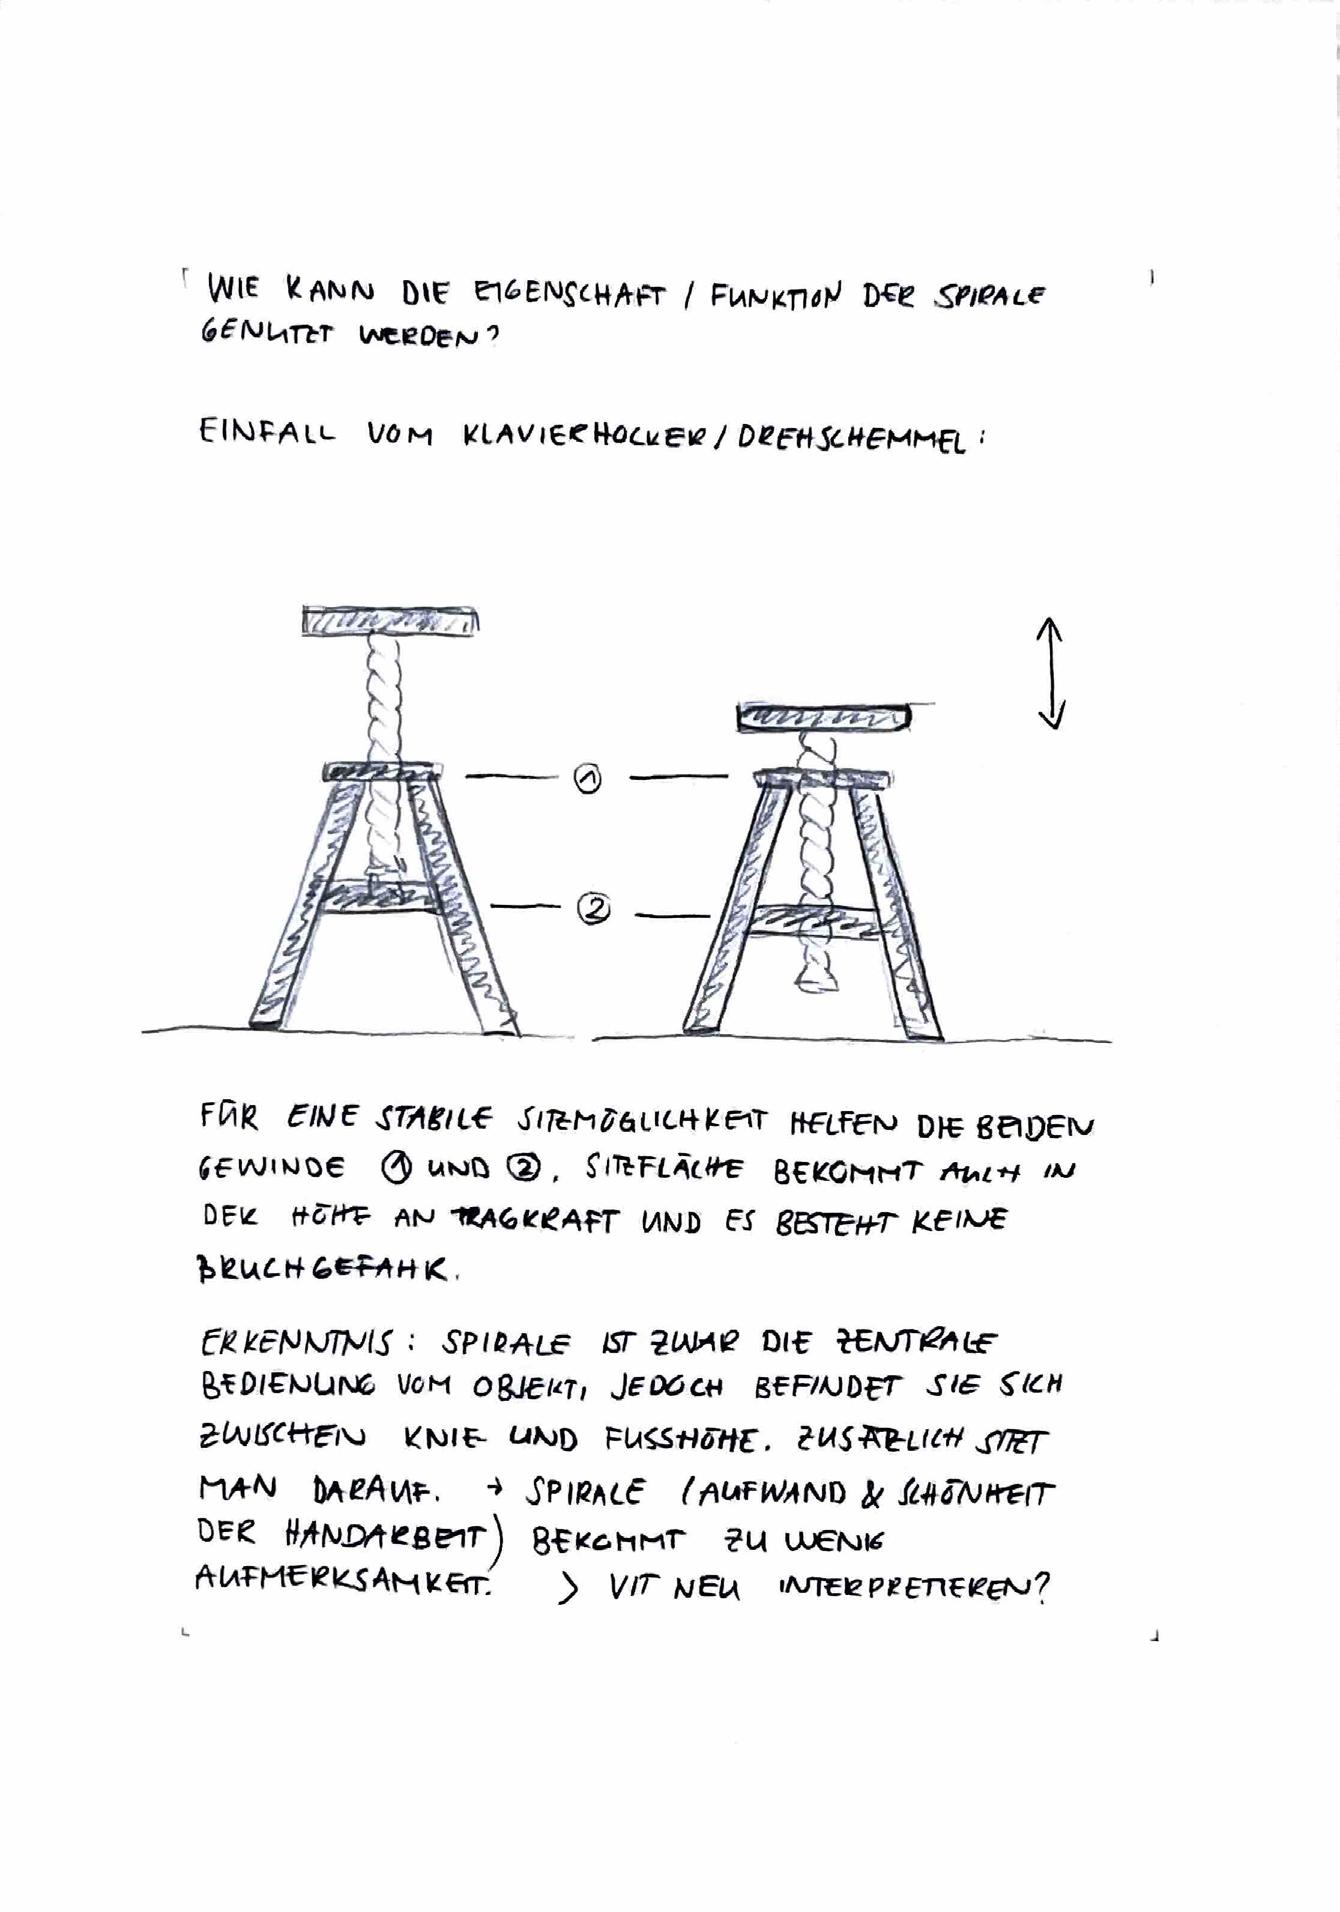 WIE KANN DIE EIGENSCHAFT / FUNKTION DER SPIRALE
GENUTZT WERDEN?
EINFALL VOM KLAVIERHOCKER / DREHSCHEMMEL:
①
②
FÜR EINE STABILE SITZMÖGLICHKEIT HELFEN DIE BEIDEN
GEWINDE ① UND ②. SITZFLÄCHE BEKOMMT AUCH IN
DER HÖHE AN TRAGKRAFT UND ES BESTEHT KEINE
BRUCHGEFAHR.
ERKENNTNIS: SPIRALE IST ZWAR DIE ZENTRALE
BEDIENUNG VOM OBJEKT, JEDOCH BEFINDET SIE SICH
ZWISCHEN KNIE UND FUSSHÖHE. ZUSÄTZLICH SITZT
MAN DARAUF. → SPIRALE (AUFWAND & SCHÖNHEIT
DER HANDARBEIT) BEKOMMT ZU WENIG
AUFMERKSAMKEIT. > VIT NEU INTERPRETIEREN?